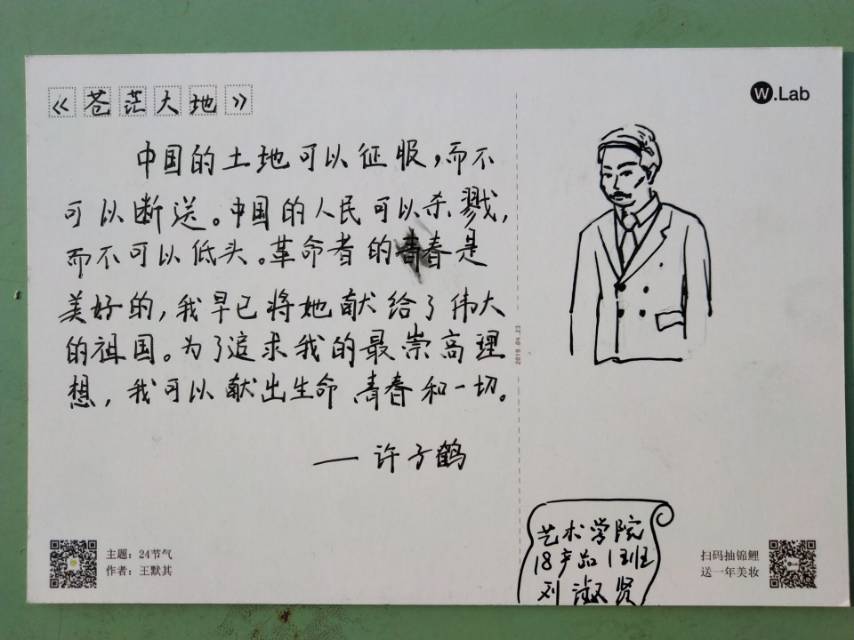 《苍茫大地》
中国的土地可以征服，而不
可以断送。中国的人民可以杀戮，
而不可以低头。革命者的青春是
美好的，我早已将她献给了伟大
的祖国。为了追求我的最崇高理
想，我可以献出生命、青春和一切。
—许子鹤
主题：24节气
作者：王默其
W.Lab
2019.04.23
艺术学院
18产品1班
刘淑贤
扫码抽锦鲤
送一年美妆